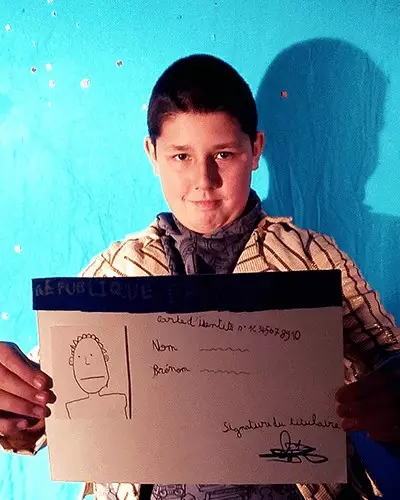 RÉPUBLIQUE
Carte d'identité n° 12345678910
Nom
Prénom
Signature du titulaire